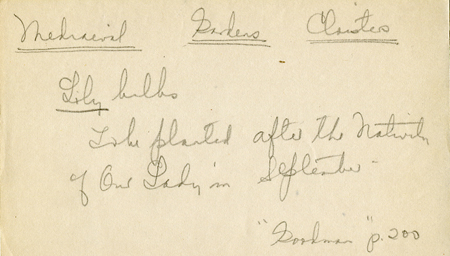 Mediaeval Gardens Cloisters
Lily bulbs
To be planted after the Nativity
of Our Lady in September -
"Goodman" p. 200